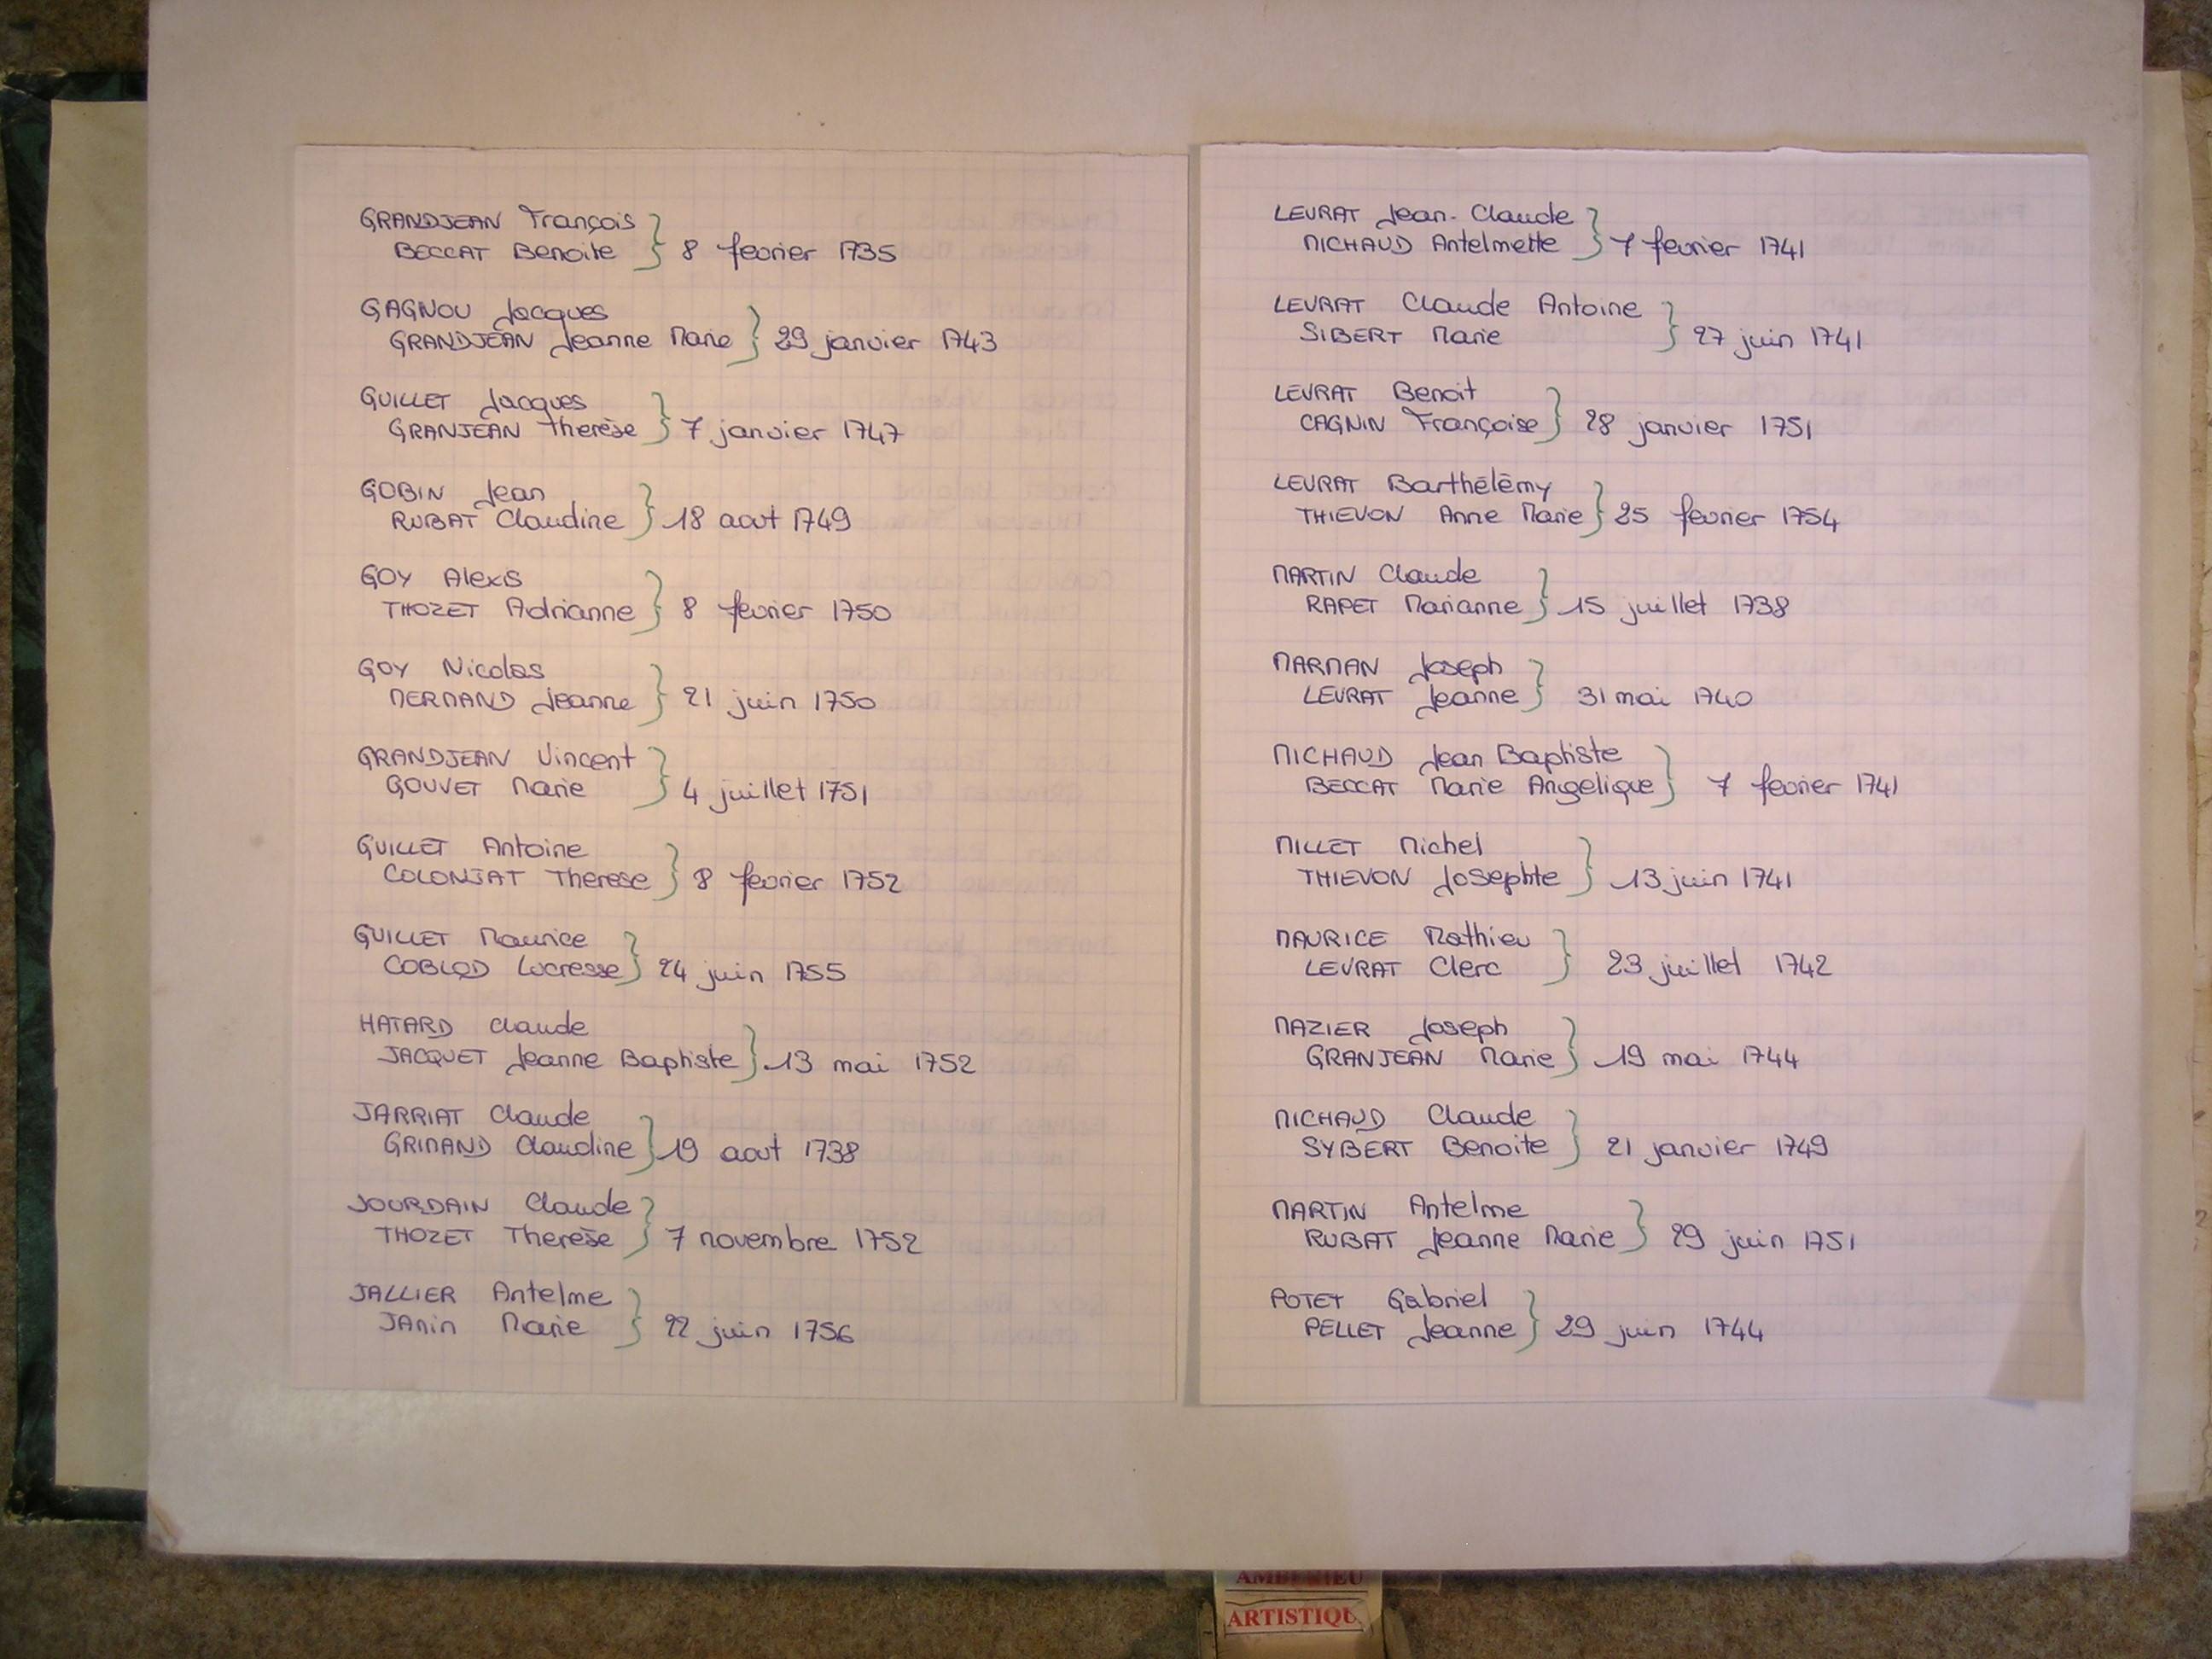 GRANDJEAN François
BECCAT Benoite } 8 fevrier 1735
GAGNOU Jacques
GRANDJEAN Jeanne Marie } 29 janvier 1743
GUILLET Jacques
GRANJEAN Therèse } 7 janvier 1747
GOBIN Jean
RUBAT Claudine } 18 aout 1749
GOY Alexis
THOZET Adrianne } 8 fevrier 1750
GOY Nicolas
MERMAND Jeanne } 21 juin 1750
GRANDJEAN Vincent
GOUVET Marie } 4 juillet 1751
GUILLET Antoine
COLONJAT Therese } 8 fevrier 1752
GUILLET Maurice
COBLOD Lucresse } 24 juin 1755
HATARD Claude
JACQUET Jeanne Baptiste } 13 mai 1752
JARRIAT Claude
GRIMAND Claudine } 19 aout 1738
JOURDAIN Claude
THOZET Therèse } 7 novembre 1752
JALLIER Antelme
JANIN Marie } 22 juin 1756
LEVRAT Jean-Claude
MICHAUD Antelmette } 7 fevrier 1741
LEVRAT Claude Antoine
SIBERT Marie } 27 juin 1741
LEVRAT Benoit
CAGNIN Françoise } 28 janvier 1751
LEVRAT Barthélémy
THIEVON Anne Marie } 25 fevrier 1754
MARTIN Claude
RAPET Marianne } 15 juillet 1738
MARMAN Joseph
LEVRAT Jeanne } 31 mai 1740
MICHAUD Jean Baptiste
BECCAT Marie Angelique } 7 fevrier 1741
MILLET Michel
THIEVON Josephte } 13 juin 1741
MAURICE Mathieu
LEVRAT Clerc } 23 juillet 1742
MAZIER Joseph
GRANJEAN Marie } 19 mai 1744
MICHAUD Claude
SYBERT Benoite } 21 janvier 1749
MARTIN Antelme
RUBAT Jeanne Marie } 29 juin 1751
POTEY Gabriel
PELLET Jeanne } 29 juin 1744
AMBERIEU
ARTISTIQU